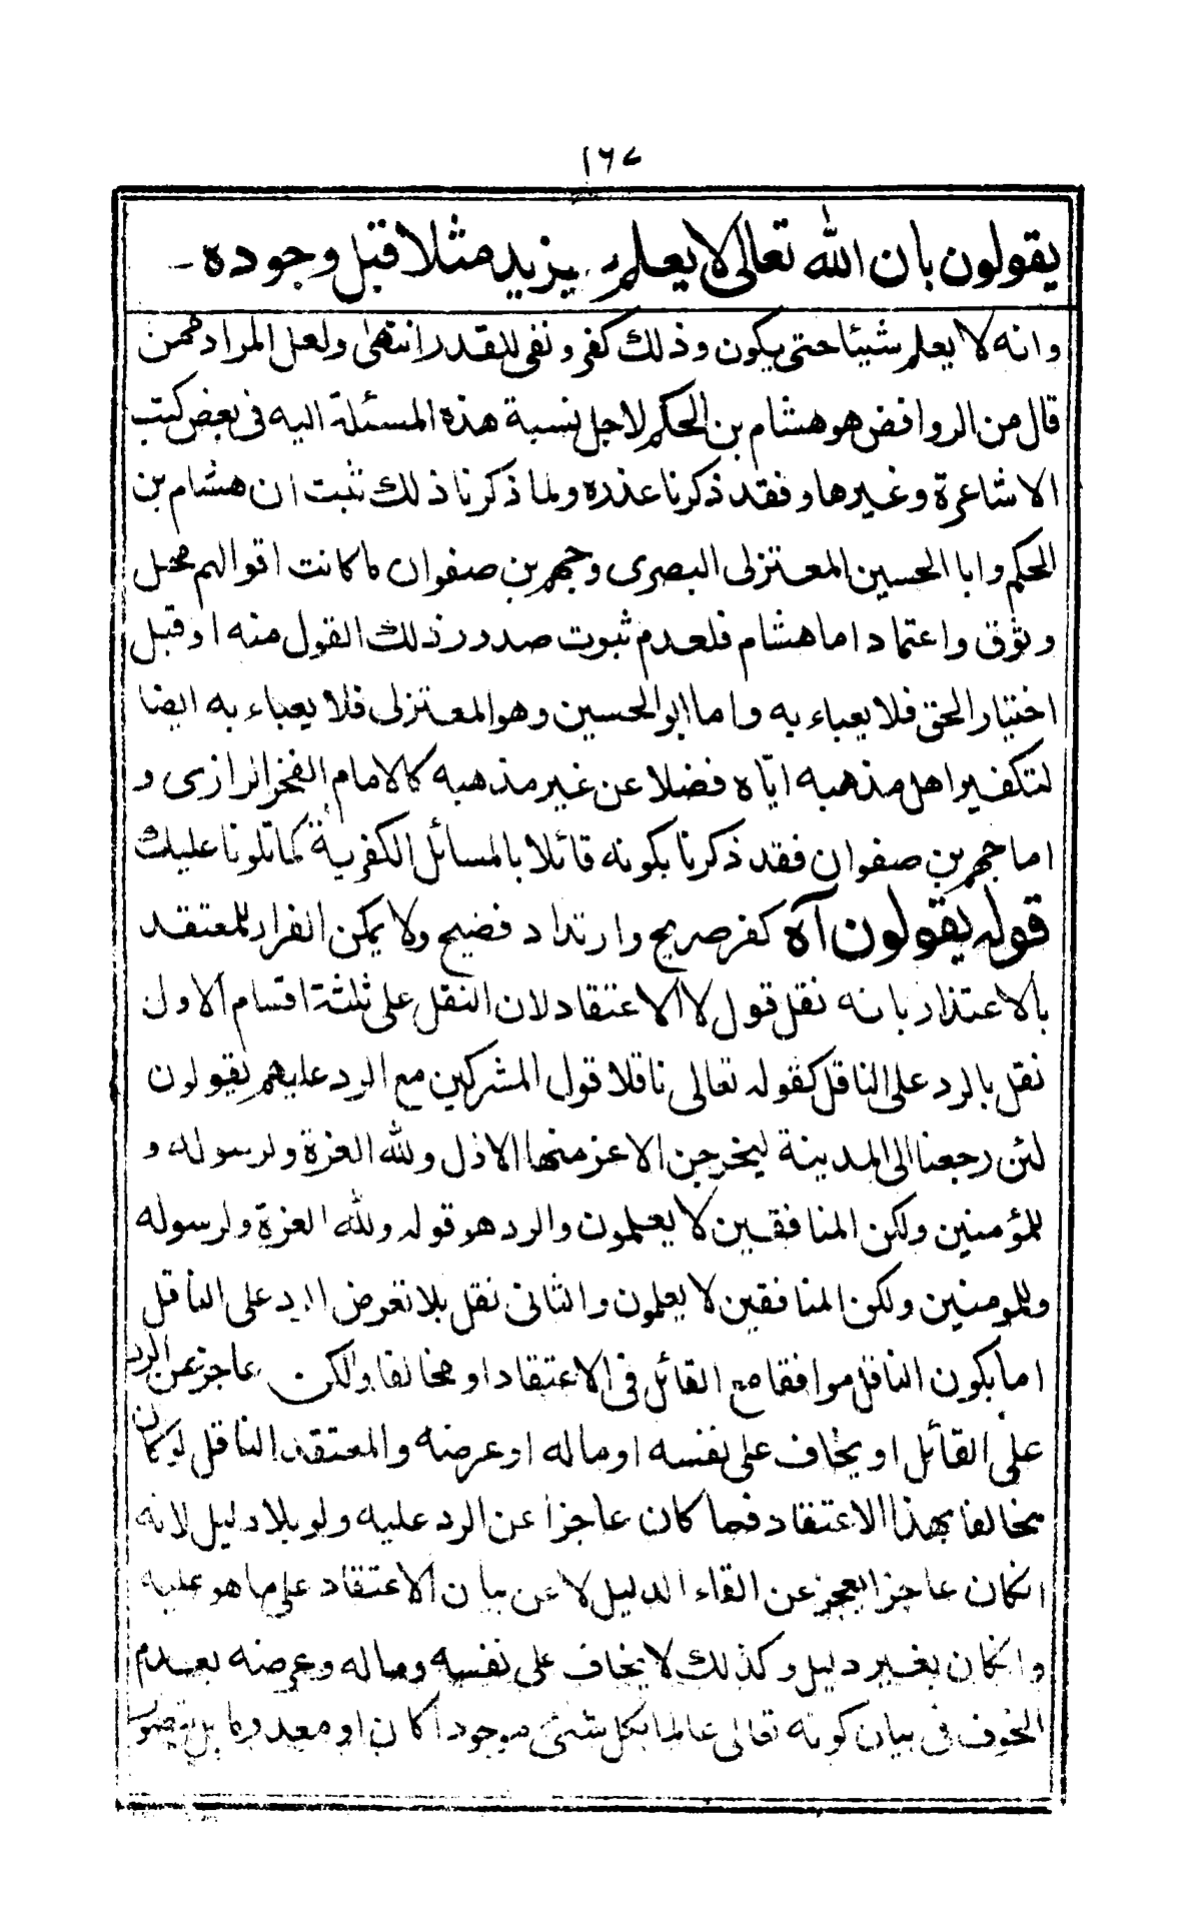 ١٦٧
يقولون بان الله تعالى لا يعلم بزيد مثلا قبل وجوده
وانه لا يعلم شيئا حتى يكون وذلك كفر ونفى للقدر انتهى ولعل المراد ممن
قال من الروافض هو هشام بن الحكم لاجل نسبة هذه المسئلة اليه فى بعض كتب
الاشاعرة وغيرها وفقد ذكرنا عذره ولما ذكرنا ذلك ثبت ان هشام بن
الحكم وابا الحسين المعتزلى البصرى وجهم بن صفوان ما كانت اقوالهم محل
وثوق واعتماد اما هشام فلعدم ثبوت صدور ذلك القول منه او قبل
اختيار الحق فلا يعباء به واما ابو الحسين وهو المعتزلى فلا يعباء به ايضا
لتكفير اهل مذهبه اياه فضلا عن غير مذهبه كالامام الفخر الرازى و
اما جهم بن صفوان فقد ذكرنا بكونه قائلا بالمسائل الكفرية كما تلونا عليك
قوله يقولون آه كفر صريح وارتداد فضيح ولا يمكن الفرار للمعتقد
بالاعتذار بانه نقل قول لا الاعتقاد لان النقل على ثلثة اقسام الاول
نقل بالرد على الناقل كقوله تعالى ناقلا قول المشركين مع الرد عليهم يقولون
لئن رجعنا الى المدينة ليخرجن الاعز منها الاذل ولله العزة ولرسوله و
للمؤمنين ولكن المنافقين لا يعلمون والرد هو قوله ولله العزة ولرسوله
وللمومنين ولكن المنافقين لا يعلمون والثانى نقل بلا تعرض الرد على الناقل
اما يكون الناقل موافقا مع القائل فى الاعتقاد او مخالفا ولكن عاجز عن الرد
على القائل او يخاف على نفسه او ماله او عرضه والمعتقد الناقل لو كان
مخالفا بهذا الاعتقاد فما كان عاجزا عن الرد عليه ولو بلا دليل لانه
انكان عاجزا يعجز عن القاء الدليل لا عن بيان الاعتقاد على ما هو عليه
وانكان بغير دليل وكذلك لا يخاف على نفسه وماله وعرضه بعدم
الخوف فى بيان كونه تعالى عالما بكل شئ موجودا كان او معدوما بل